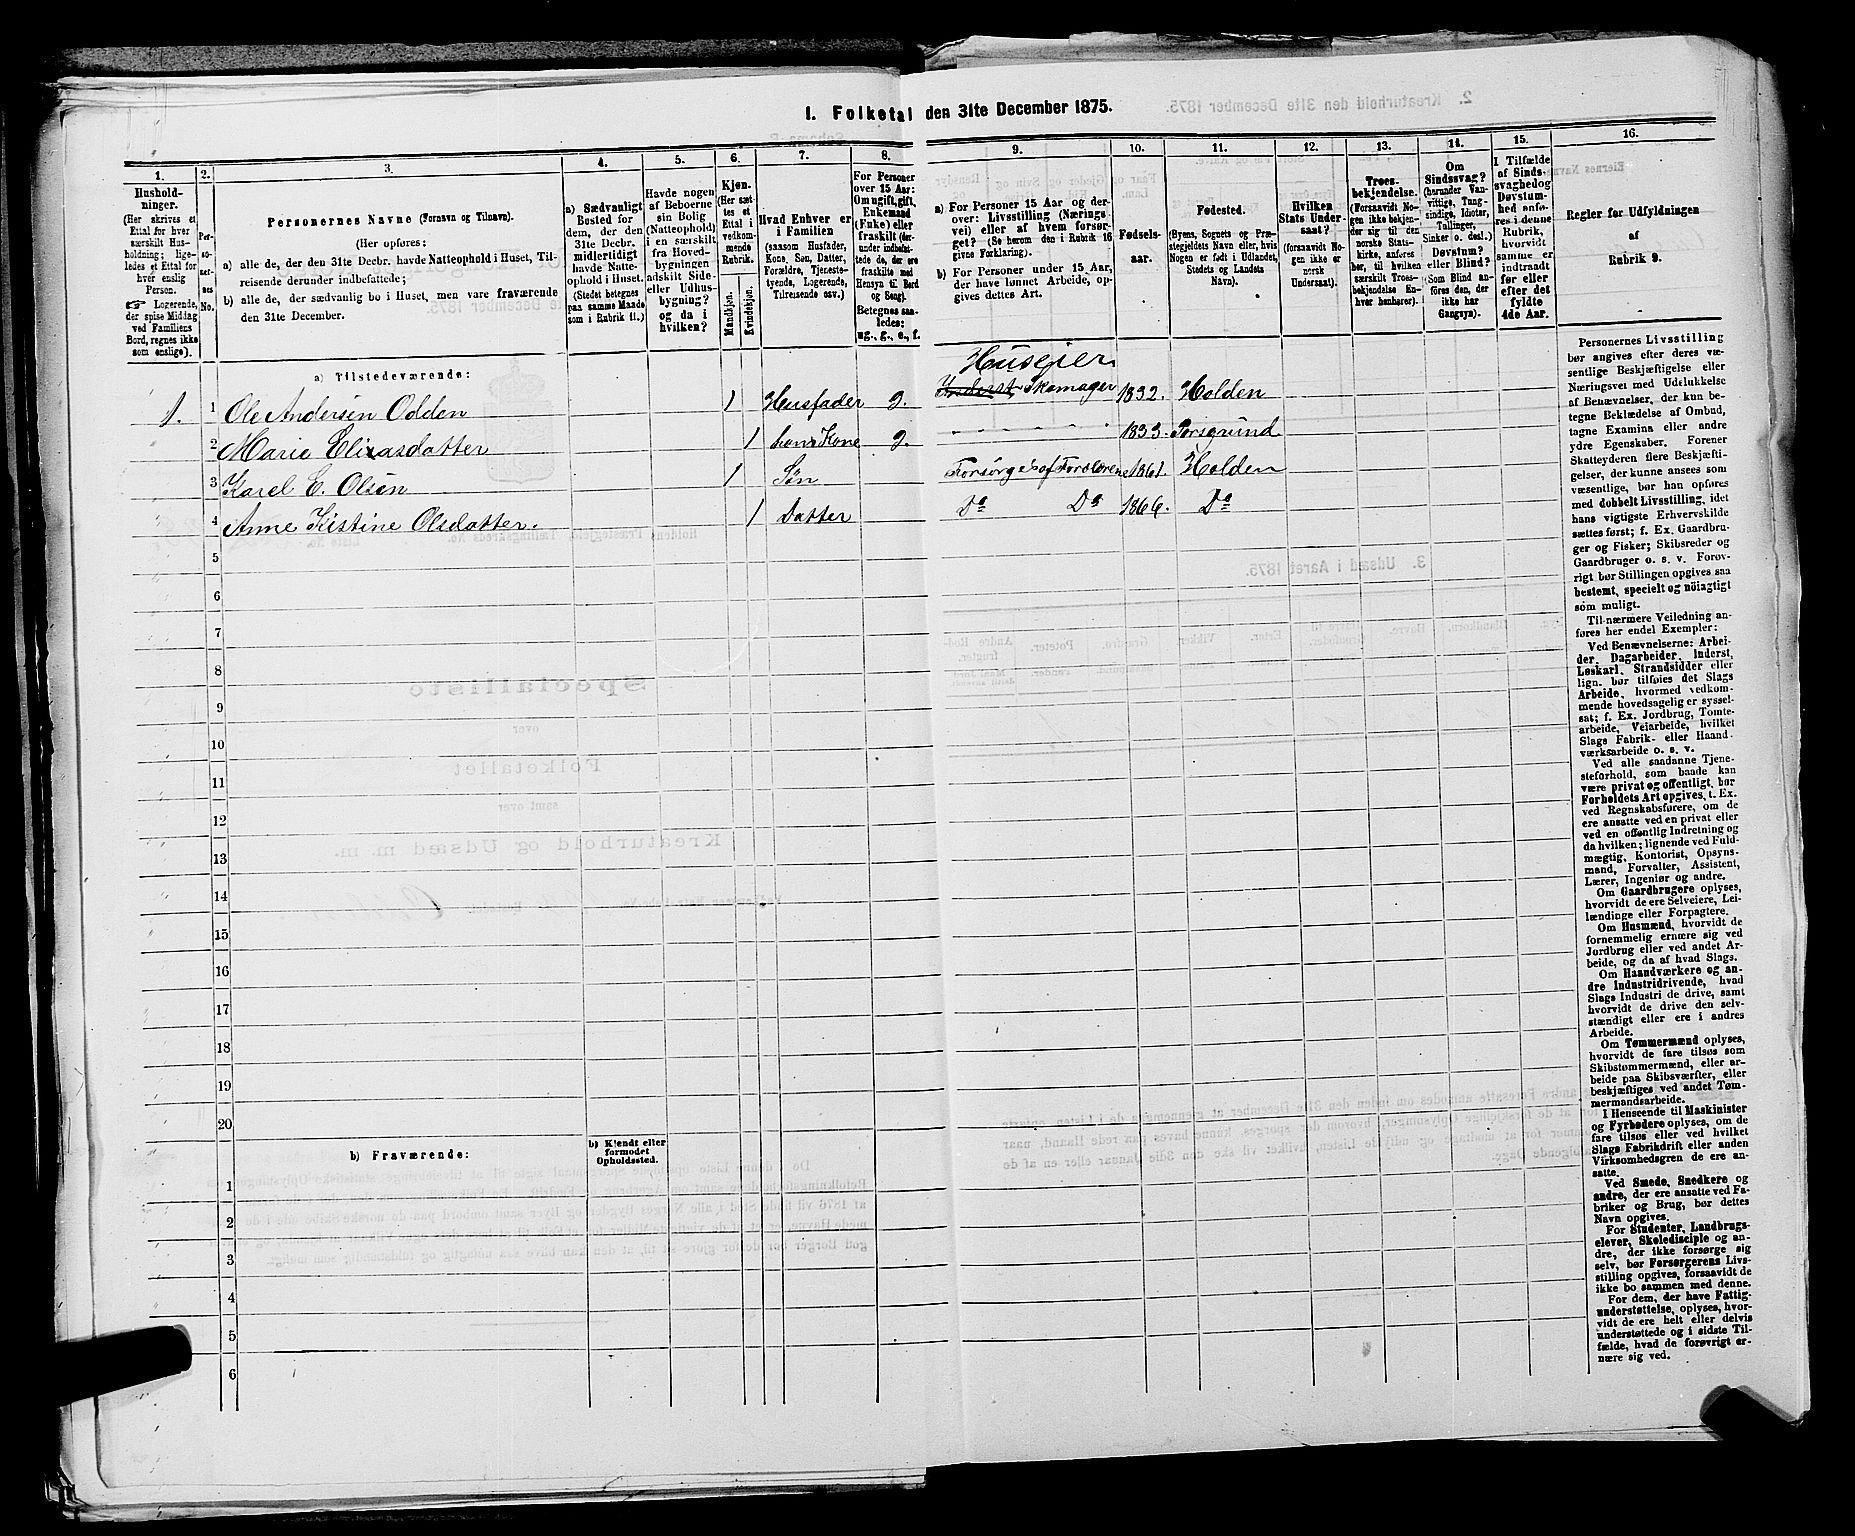 I. Folketal den 31te December 1875.
1. 2. 3. 4. 5. 6. 7. 8. 9. 10. 11. 12. 13. 14. 15. 16.
Hushold-
ninger.
(Her skrives et
Ettal for hver
særskilt Hus-
holdning; lige-
ledes et Ettal for
hver enslig
Person.
☞ Logerende,
der spise Middag
ved Familiens
Bord, regnes ikke
som enslige).
Per-
so-
ner-
nes
No.
Personernes Navne (Fornavn og Tilnavn).
(Her opføres:
a) alle de, der den 31te Decbr. havde Natteophold i Huset, Til-
reisende derunder indbefattede;
b) alle de, der sædvanlig bo i Huset, men vare fraværende
den 31te December.
a) Sædvanligt
Bosted for
dem, der den
31te Decbr.
midlertidigt
havde Natte-
ophold i Huset.
(Stedet betegnes
paa samme Maade
som i Rubrik 11.)
Havde nogen
af Beboerne
sin Bolig
(Natteophold)
i en særskilt
fra Hoved-
bygningen
adskilt Side-
eller Udhus-
bygning?
og da i
hvilken?
Kjøn.
(Her sæt-
tes et
Ettal i
vedkom-
mende
Rubrik.
Mandkjøn.
Kvindekjøn.
Hvad Enhver er
i Familien
(saasom Husfader,
Kone, Søn, Datter,
Forældre, Tjeneste-
tyende, Logerende,
Tilreisende osv.)
For Personer
over 15 Aar:
Om ugift, gift,
Enkemand
(Enke) eller
fraskilt (der-
under indbefat-
tede de, der ere
fraskilte med
Hensyn til Bord
og Seng).
Betegnes saa-
ledes:
ug., g., e., f.
a) For Personer 15 Aar og der-
over: Livsstilling (Nærings-
vei) eller af hvem forsør-
get? (Se herom den i Rubrik 16
givne Forklaring).
b) For Personer under 15 Aar,
der have lønnet Arbeide, op-
gives dettes Art.
Fødsels-
aar.
Fødested.
(Byens, Sognets og Præ-
stegjeldets Navn eller, hvis
Nogen er født i Udlandet,
Stedets og Landets
Navn).
Hvilken
Stats Under-
saat?
(forsaavidt No-
gen ikke er
norsk
Undersaat).
Troes-
bekjendelse.
(Forsaavidt No-
gen ikke bekjen-
der sig til den
norske Stats-
kirke, anføres
her, til hvilken
særskilt Troes-
bekjendelse En-
hver henhører).
Om
Sindssvag?
(herunder Van-
vittige, Tung-
sindige, Idioter,
Tullinger,
Sinker o. desl.)
Døvstum?
eller Blind?
(Som Blind an-
føres den, der
ikke har
Gangsyn).
I Tilfælde
af Sinds-
svaghed og
Døvstum-
hed anfø-
res i denne
Rubrik,
hvorvidt
samme er
indtraadt
før eller
efter det
fyldte
4de Aar.
Regler for Udfyldningen
af
Rubrik 9.
a) Tilstedeværende:
Huseier
1. 1 Ole Andersen Odden 1 Husfader g. Inderst, Skomager 1832. Holden
2 Marie Eliasdatter 1 hans Kone g. 1833. Porsgrund
3 Karel E. Olsen 1 Søn Forsørges af Forældrene 1861. Holden
4 Anne Kistine Olsdatter. 1 Datter Do Do 1866. Do
5
6
7
8
9
10
11
12
13
14
15
16
17
18
19
20
b) Fraværende:
b) Kjendt eller
formodet
Opholdssted.
1
2
3
4
5
6
Personernes Livsstilling
bør angives efter deres væ-
sentlige Beskjæftigelse eller
Næringsvei med Udelukkelse
af Benævnelser, der kun be-
tegne Beklædelse af Ombud,
tagne Examina eller andre
ydre Egenskaber. Forener
Skatteyderen flere Beskjæfti-
gelser, der kunne ansees som
væsentlige, bør han opføres
med dobbelt Livsstilling, idet
hans vigtigste Erhvervskilde
sættes først; f. Ex. Gaardbru-
ger og Fisker; Skibsreder og
Gaardbruger o. s. v. Forøv-
rigt bør Stillingen opgives saa
bestemt, specielt og nöiagtigt
som muligt.
Til nærmere Veiledning an-
føres her endel Exempler:
Ved Benævnelserne: Arbei-
der, Dagarbeider, Inderst,
Løskarl, Strandsidder eller
lign. bør tilføies det Slags
Arbeide, hvormed vedkom-
mende hovedsagelig er syssel-
sat; f. Ex. Jordbrug, Tomte-
arbeide, Veiarbeide, hvilket
Slags Fabrik- eller Haand-
værksarbeide o. s. v.
Ved alle saadanne Tjene-
steforhold, som baade kan
være privat og offentligt, bør
Forholdets Art opgives, t. Ex.
ved Regnskabsførere, om de
ere ansatte ved en privat eller
ved en offentlig Indretning og
da hvilken; lignende ved Fuld-
mægtig, Kontorist, Opsyns-
mand, Forvalter, Assistent,
Lærer, Ingeniør og andre.
Om Gaardbrugere oplyses,
hvorvidt de ere Selveiere, Lei-
lændinge eller Forpagtere.
Om Husmænd, hvorvidt de
fornemmelig ernære sig ved
Jordbrug eller ved andet Ar-
beide, og da af hvad Slags.
Om Haandværkere og an-
dre Industridrivende, hvad
Slags Industri de drive, samt
hvorvidt de drive den selv-
stændigt eller ere i andres
Arbeide.
Om Tømmermænd oplyses,
hvorvidt de fare tilsøs som
Skibstømmermænd, eller ar-
beide paa Skibsværfter, eller
beskjæftiges ved andet Tøm-
mermandsarbeide.
I Henseende til Maskinister
og Fyrbødere oplyses, om de
fare tilsøs eller ved hvilket
Slags Fabrikdrift eller anden
Virksomhedsgren de ere an-
satte.
Ved Smede, Snedkere og
andre, der ere ansatte ved Fa-
briker og Brug, bør dettes
Navn opgives.
For Studenter, Landbrugs-
elever, Skoledisciple og an-
dre, der ikke forsørge sig
selv, bør Forsørgerens Livs-
stilling opgives, forsaavidt de
ikke bo sammen med denne.
For dem, der have Fattig-
understøttelse, oplyses, hvor-
vidt de ere helt eller delvis
understøttede og i sidste Til-
fælde, hvad de forøvrigt er-
nære sig ved.